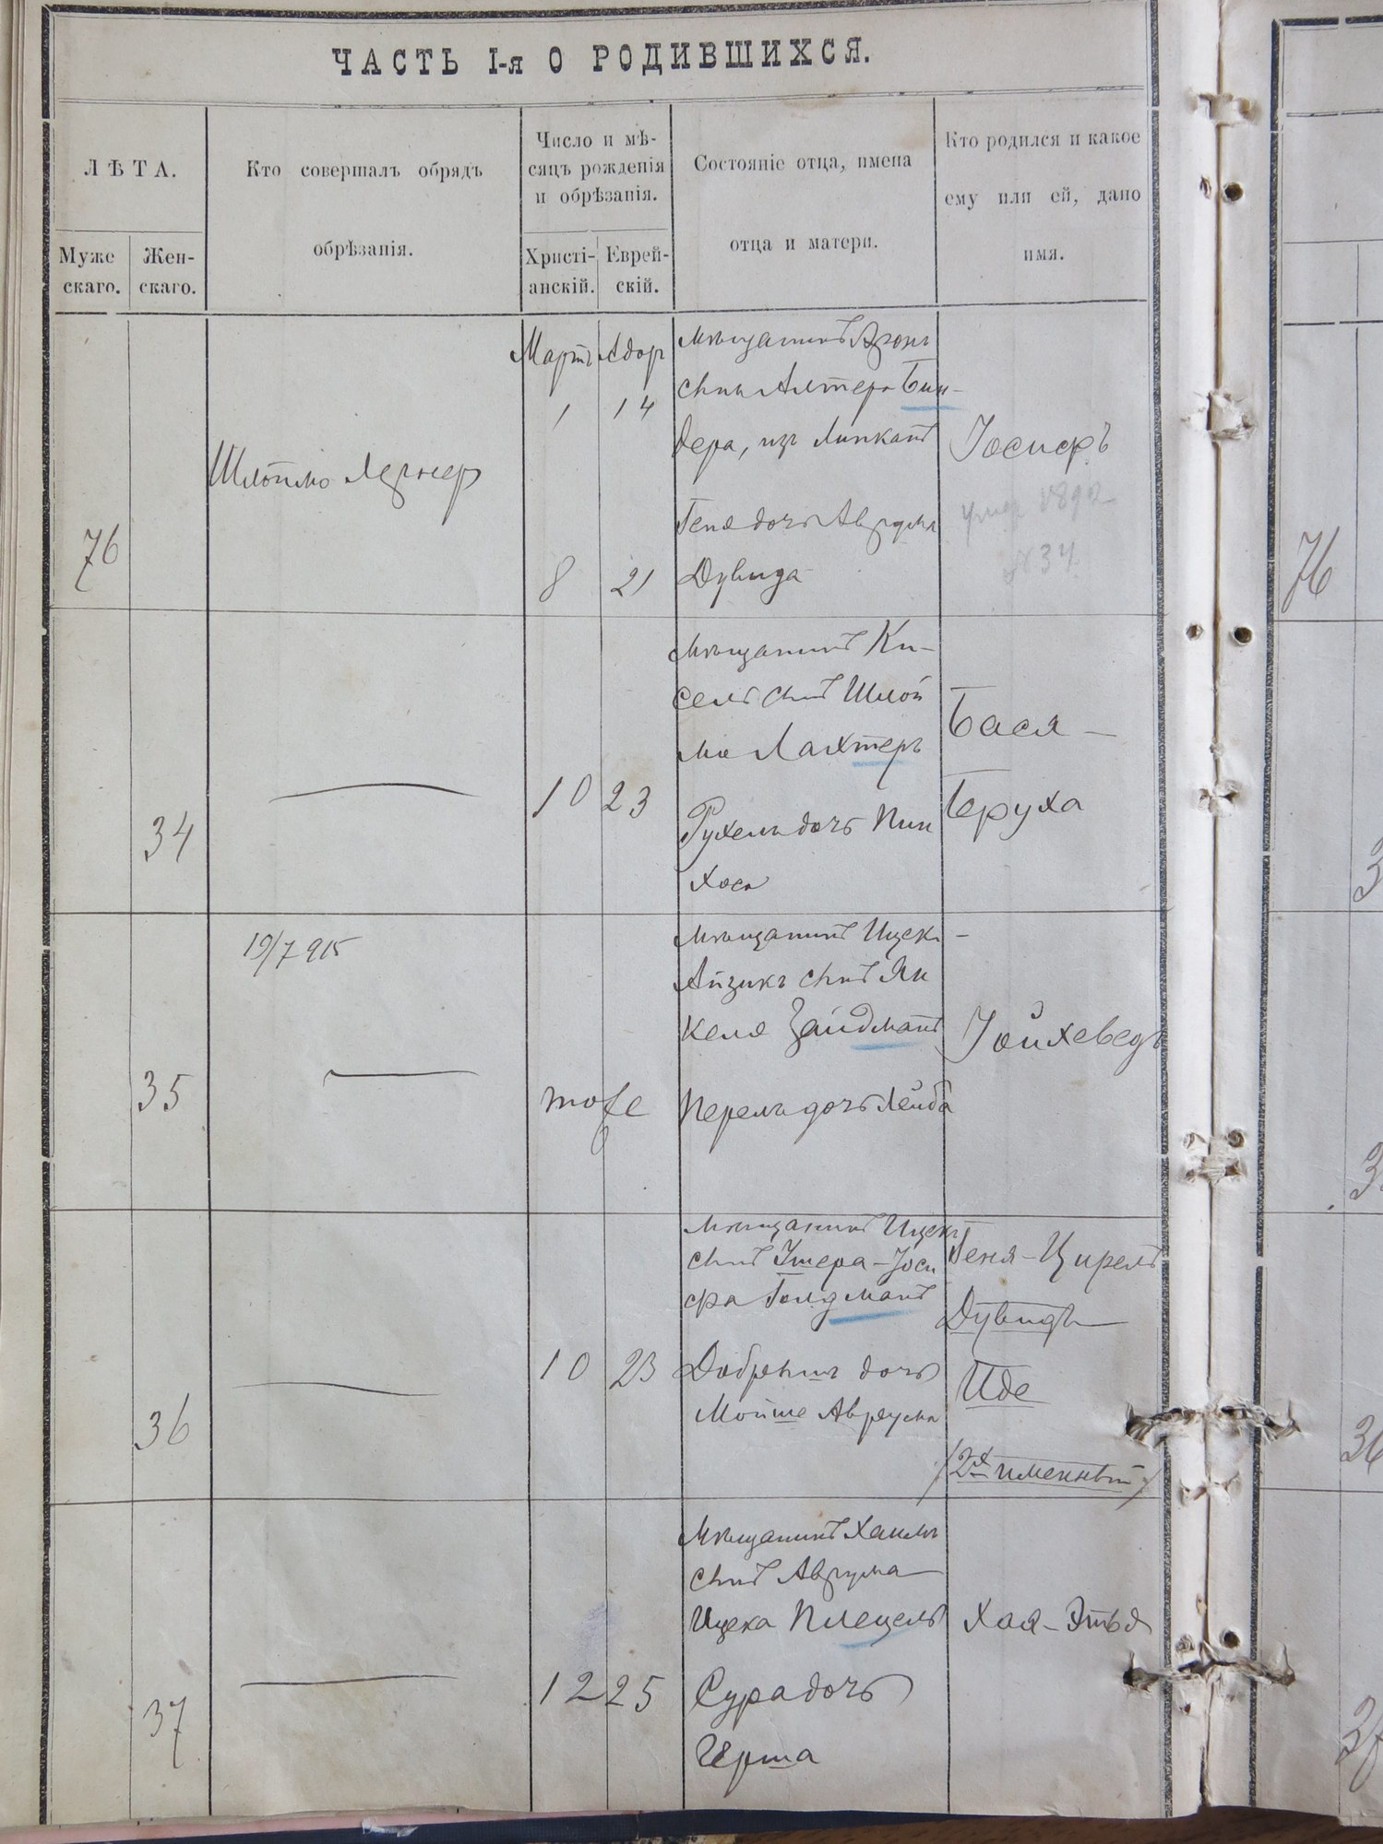 ЧАСТЬ I-я О РОДИВШИХСЯ.
ЛѢТА.
Муже
скаго.
Жен-
скаго.
Кто совершалъ обрядъ
обрѣзанія.
Число и мѣ-
сяцъ рожденія
и обрѣзанія.
Христі-
анскій.
Еврей-
скій.
Состояніе отца, имена
отца и матери.
Кто родился и какое
ему или ей, дано
имя.
76
Шлоймо Лернер
Мартъ Адор
1 14
8 21
мещанинъ Аронъ
сынъ Алтера Бин-
дера, изъ Липканъ
Геня дочь Аврума
Дувида
Іосифъ
умер 1892
№34
76
34
10 23
мещанинъ Ки-
сель сынъ Шлой
мы Лахтеръ
Рухель дочь Пин
хоса
Бася -
Бруха
19/7 915
35
тоже
мещанинъ Ицек -
Айзикъ сынъ Ян
келя Зайдманъ
Перель дочь Лейба
Іойхеведъ
36
10 23
мещанинъ Ицекъ
сынъ Умера-Іоси
фа Голдманъ
Добрышъ дочь
Мойше Аврума
Геня-Цирель
Дувидъ
Иде
(2х именный)
36
37
12 25
Мещанинъ Хаимъ
сынъ Аврума
Ицека Плецелъ
Сура дочь
Герша
Хая-Этья